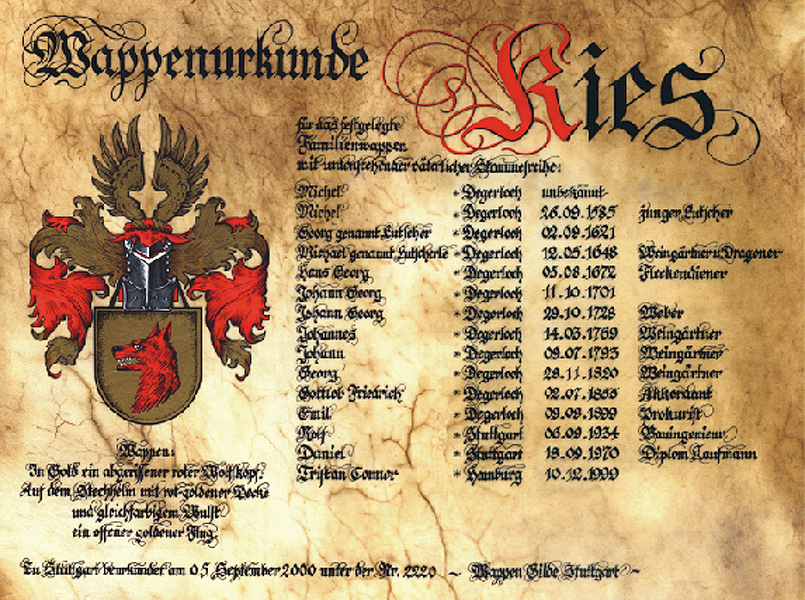 Wappenurkunde Kies
für das festgelegte
Familienwappen
mit untenstehender väterlicher Stammesreihe:
Michel * Degerloch unbekannt
Michel * Degerloch 26.09.1585 junger Kutscher
Georg genannt Kutscher * Degerloch 02.09.1621
Michael genannt Kutscherle * Degerloch 12.05.1648 Weingärtner u. Dragoner
Hans Georg * Degerloch 05.08.1672 Fleckendiener
Johann Georg * Degerloch 11.10.1701
Johann Georg * Degerloch 29.10.1728 Weber
Johannes * Degerloch 14.03.1769 Weingärtner
Johann * Degerloch 09.07.1793 Weingärtner
Georg * Degerloch 28.11.1820 Weingärtner
Gottlob Friedrich * Degerloch 02.07.1855
Emil * Degerloch 09.08.1899 Prokurist
Rolf * Stuttgart 06.09.1934 Bauingenieur
Daniel * Stuttgart 18.09.1970 Diplom Kaufmann
Tristan Connor * Hamburg 10.12.1999
Wappen:
In Gold ein abgerissener roter Wolfskopf.
Auf dem Stechhelm mit rot-goldener Decke
und gleichfarbigem Wulst
ein offener goldener Flug.
Zu Stuttgart beurkundet am 05. September 2000 unter der Nr. 2220 ~ Wappen Gilde Stuttgart ~